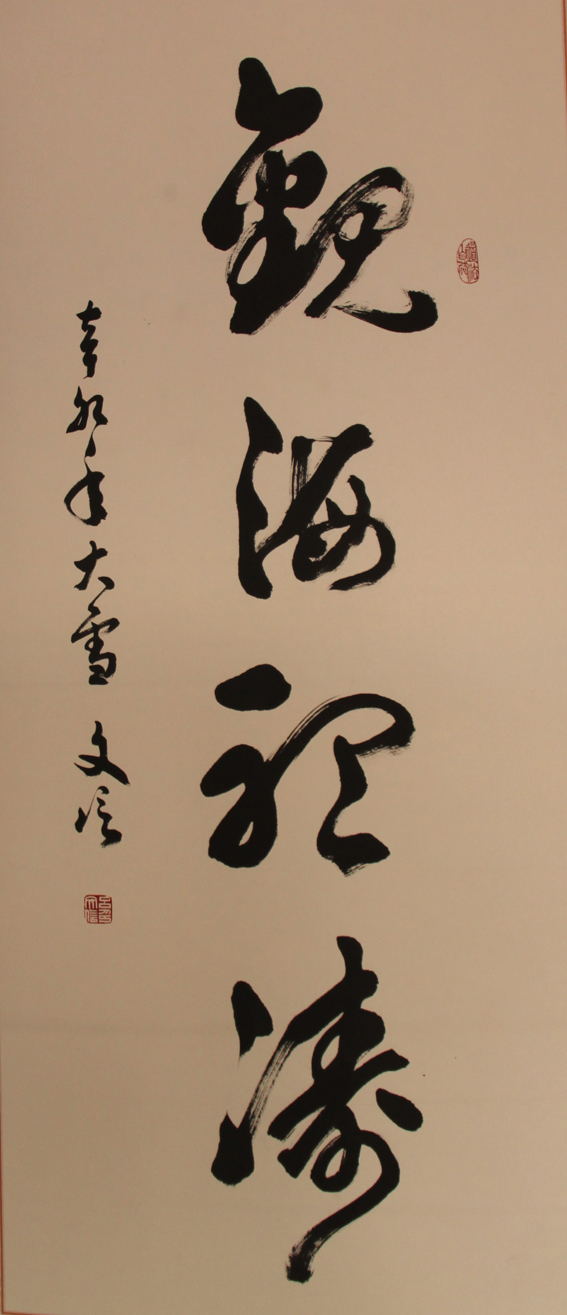 觀海聽濤
辛卯年大雪 文信